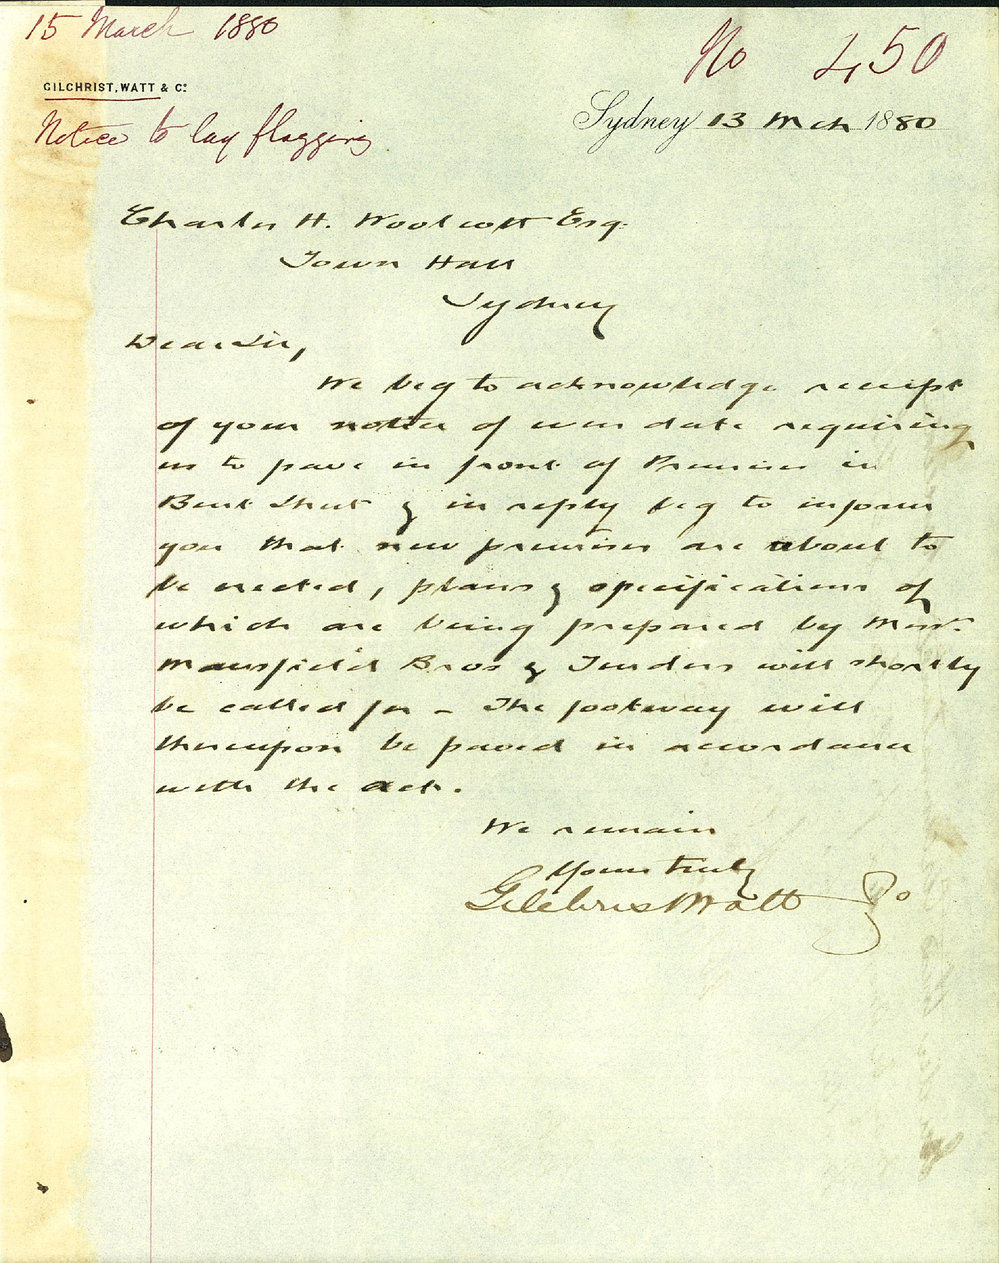 15 March 1880
No 450
GILCHRIST, WATT & Co.
Notice to lay flagging
Sydney 13 Mch 1880
Charles H. Woolcott Esq.
Town Hall
Sydney
Dear Sir,
We beg to acknowledge receipt
of your notice of even date requiring
us to pave in front of Premises in
Bent Street & in reply beg to inform
you that new premises are about to
be erected, plans & specifications of
which are being prepared by Messrs.
Mansfield Bros & Tenders will shortly
be called for - The footway will
thereupon be paved in accordance
with the Act.
We remain
Yours truly
Gilchrist Watt & Co